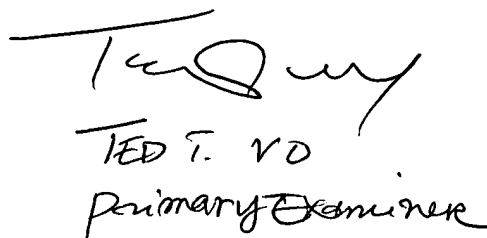 TED T. VO
Primary Examiner